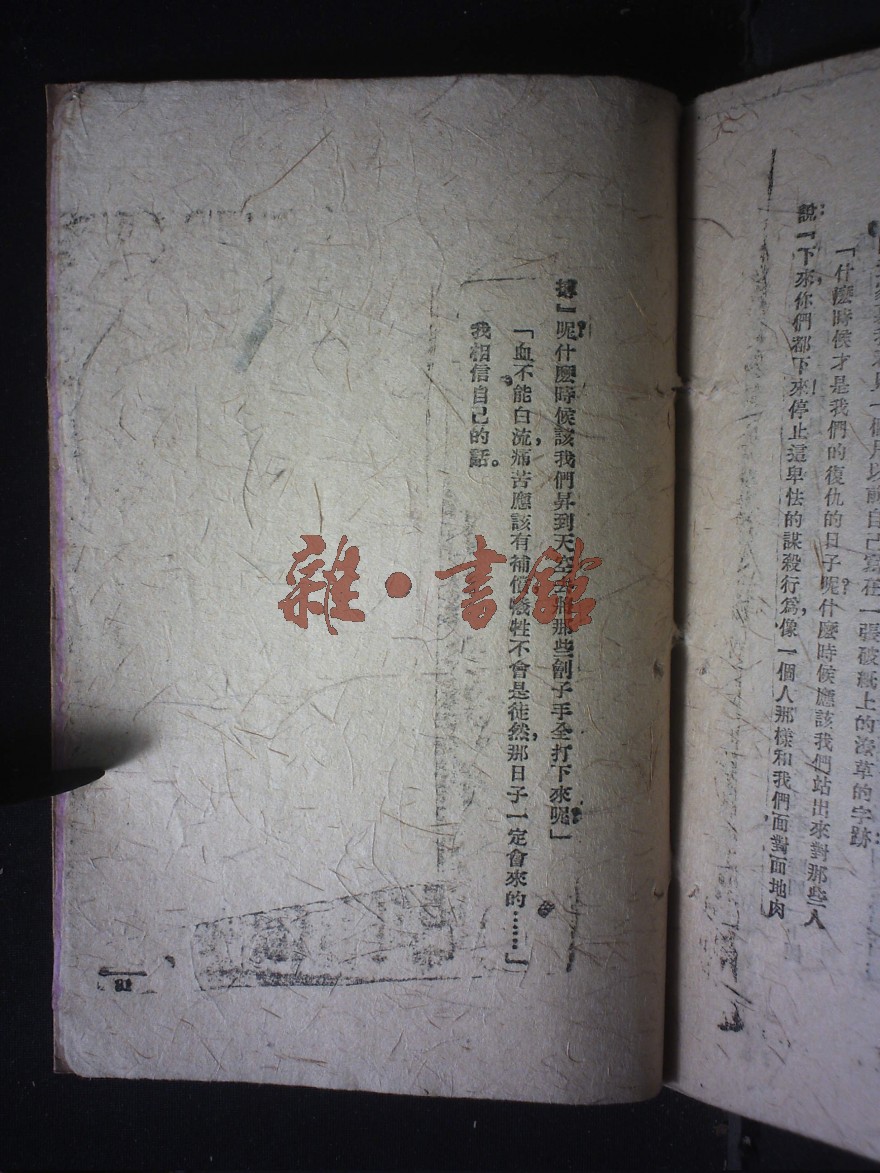 一個月以前自己寫在一張破紙上的潦草的字跡：
「什麼時候才是我們的復仇的日子呢？什麼時候應該我們站出來對那些人
說：『下來！你們都下來，停止這卑怯的謀殺行爲，像一個人那樣和我們面對面地肉
搏』呢？什麼時候該我們昇到天空去將那些劊子手全打下來呢？」
「血不能白流，痛苦應該有補償，犧牲不會是徒然，那日子一定會來的……」
我相信自己的話。
31
雜·書館